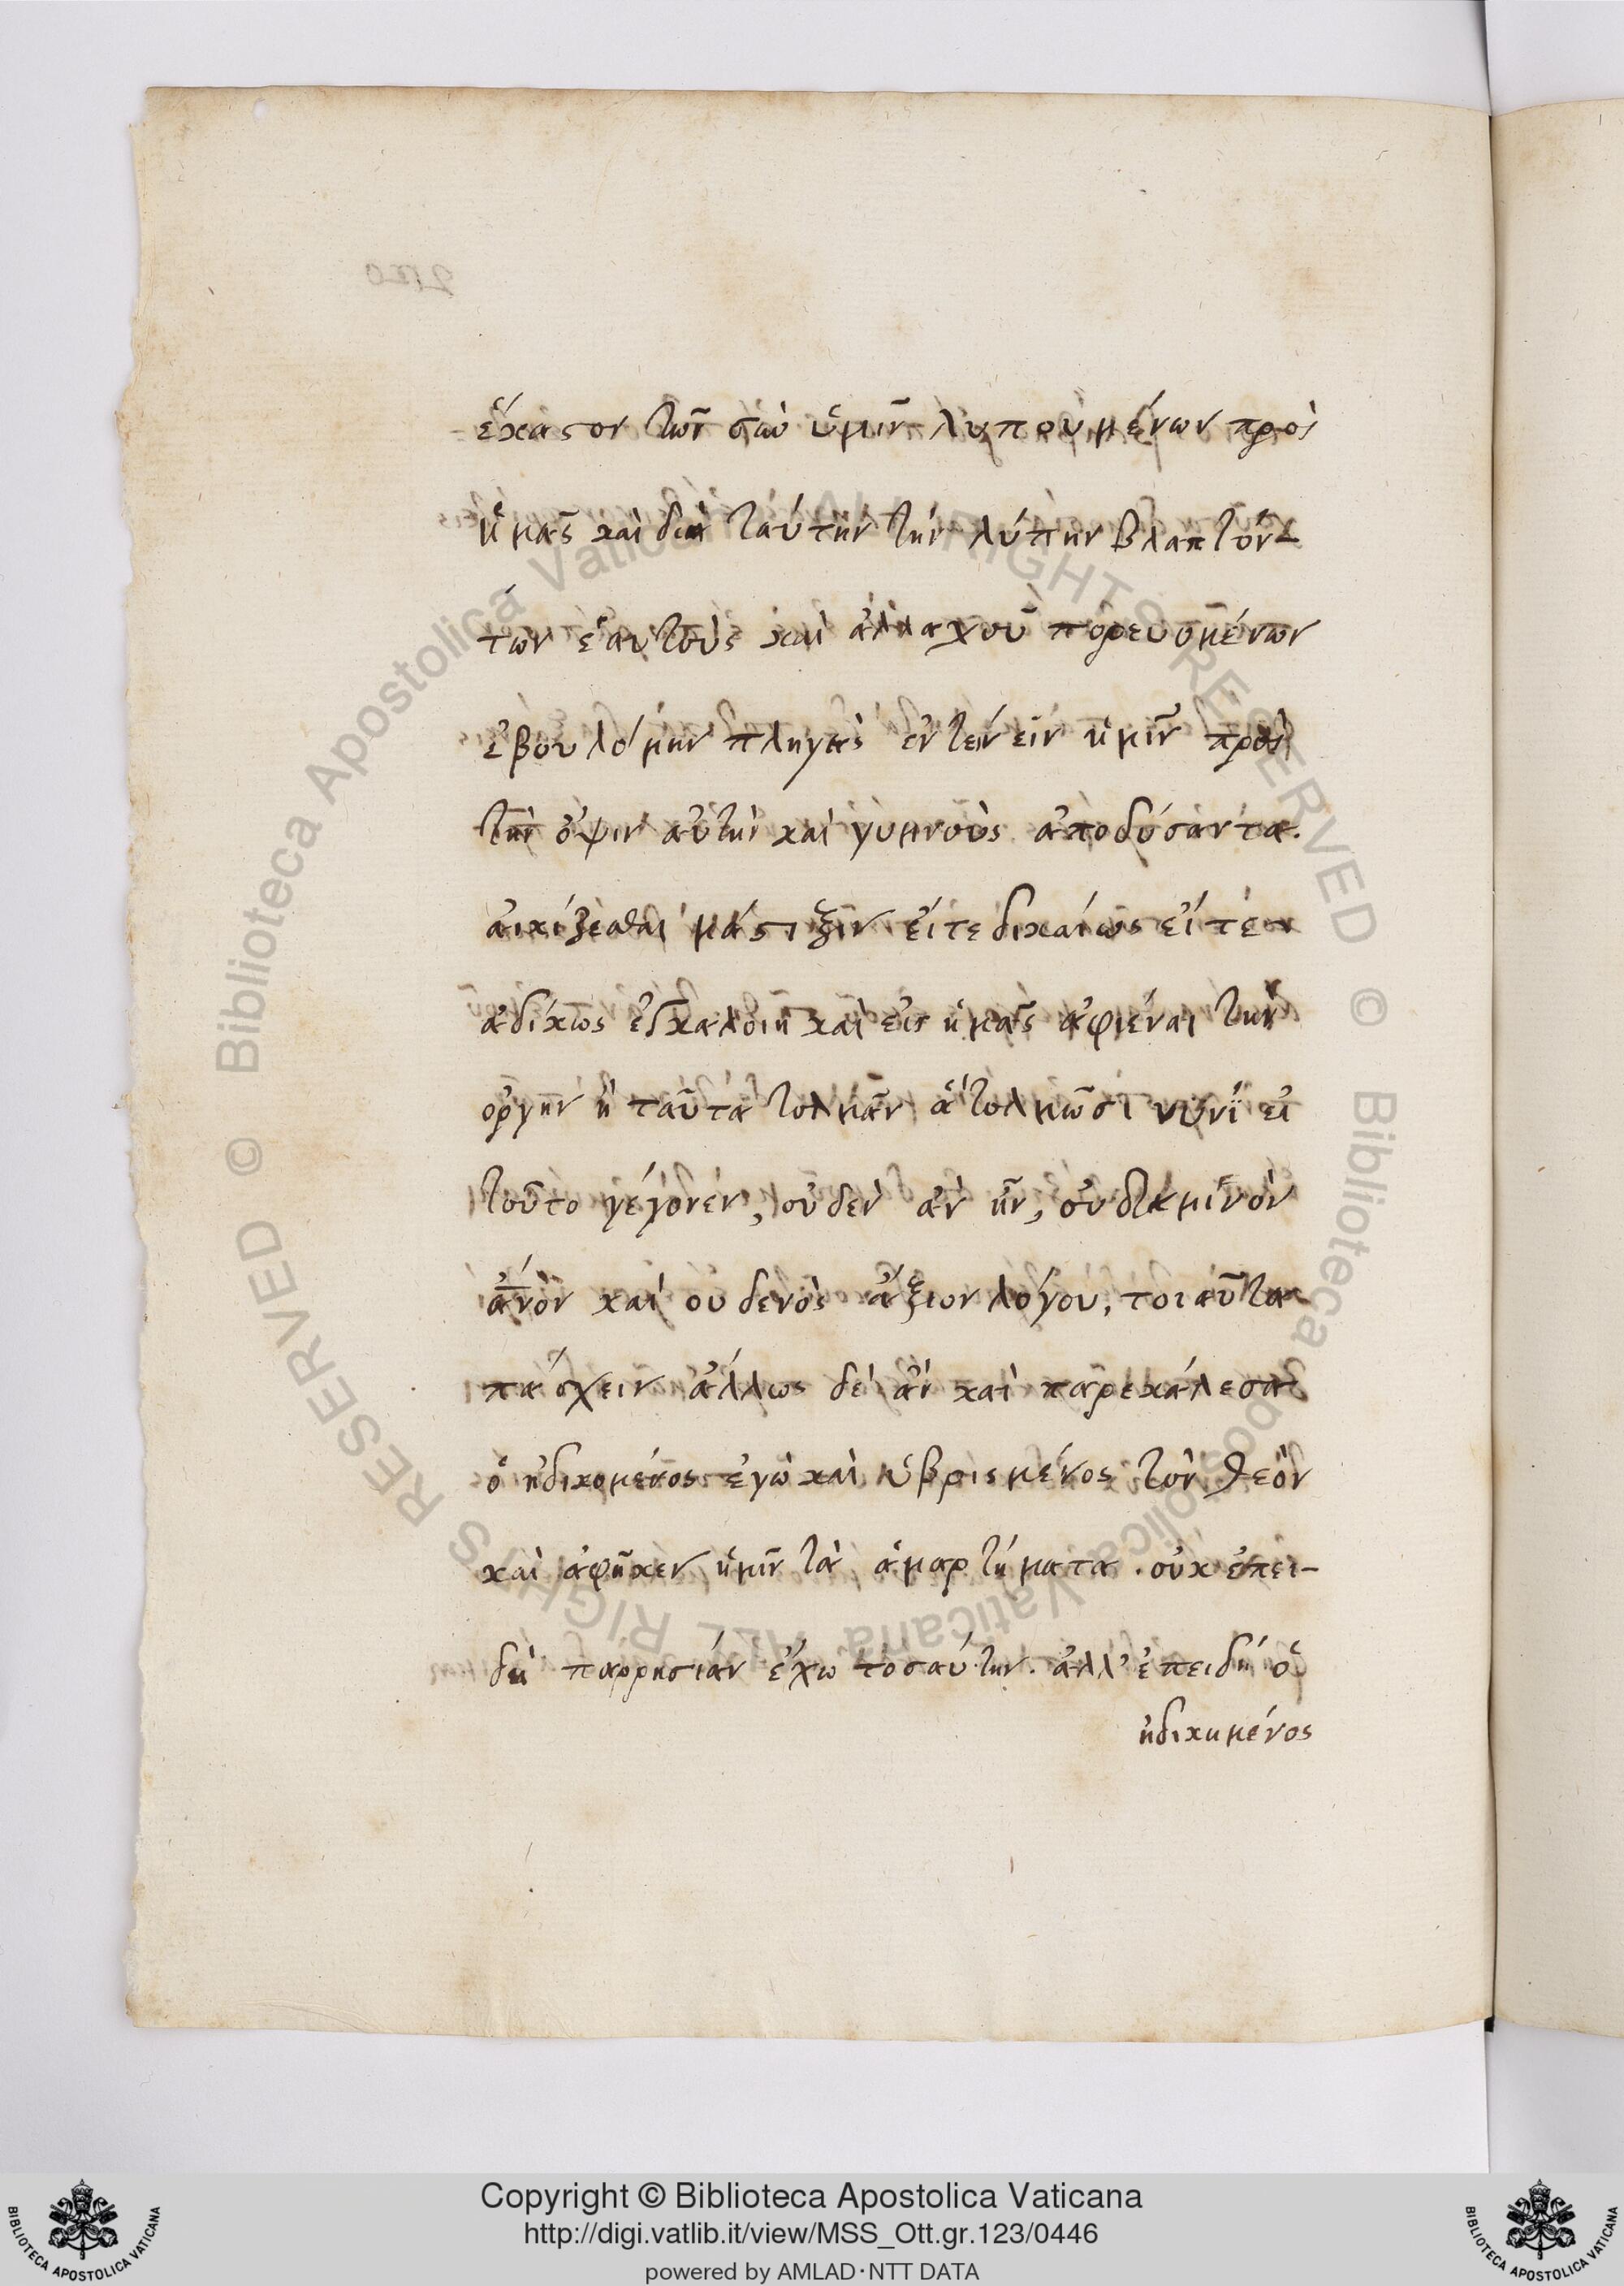 ἕκαστον τῶν σὺν ὑμῖν λυπουμένων πρὸς
ἡμᾶς καὶ διὰ ταύτην τὴν λύπην βλαπτόν-
των ἑαυτοὺς καὶ ἀλλαχοῦ πορευομένων
ἐβουλόμην πληγὰς ἐντείνειν ἡμῖν πρὸς
τὴν ὄψιν αὐτὴν καὶ γυμνοὺς ἀποδύσαντα
αἰκίζεσθαι μάστιξιν εἴτε δικαίως εἴτε
ἀδίκως ἐγκαλοίη καὶ εἰς ἡμᾶς ἀφιέναι τὴν
ὀργὴν ἢ ταῦτα τολμᾶν ἃ τολμῶσι νυνὶ εἰ
τοῦτο γέγονεν, οὐδὲν ἂν ἦν,
ἄνον καὶ οὐδενὸς ἄξιον λόγου, τοιαῦτα
πάσχειν ἄλλως δὲ ἂν καὶ παρεκάλεσα
ὁ ἠδικομένος ἐγὼ καὶ ὑβρισμένος τὸν θεὸν
καὶ ἀφῆκεν ἡμῖν τὰ ἁμαρτήματα . οὐκ ἐπει-
δὴ παρρησίαν ἔχω τοσαύτην . ἀλλ' ἐπειδὴ ὁ
ἠδικημένος
Copyright © Biblioteca Apostolica Vaticana
http://digi.vatlib.it/view/MSS_Ott.gr.123/0446
powered by AMLAD·NTT DATA
BIBLIOTECA APOSTOLICA VATICANA
BIBLIOTECA APOSTOLICA VATICANA
© Biblioteca Apostolica Vaticana ALL RIGHTS RESERVED © Biblioteca Apostolica Vaticana ALL RIGHTS RESERVED